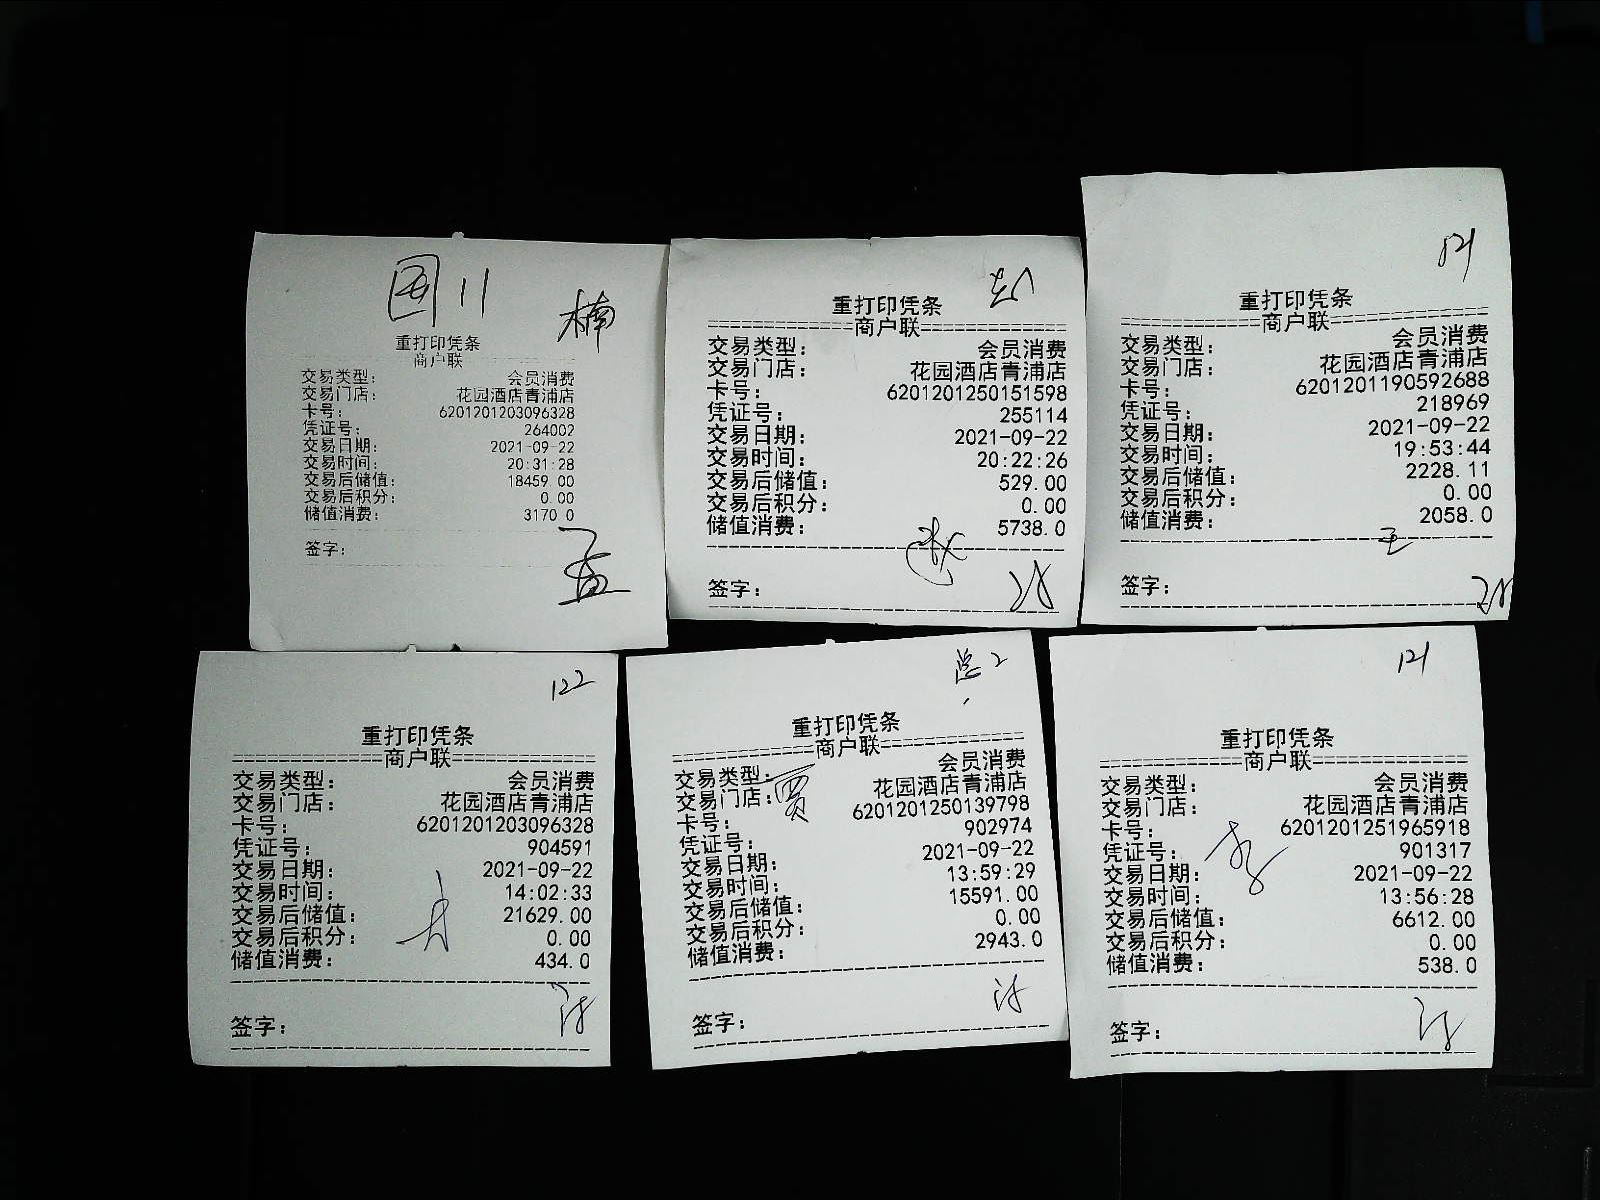 楠
重打印凭条
商户联
交易类型: 会员消费
交易门店: 花园酒店青浦店
卡号: 6201201203096328
凭证号: 264002
交易日期: 2021-09-22
交易时间: 20:31:28
交易后储值: 18459.00
交易后积分: 0.00
储值消费: 3170.0
签字:
孟
重打印凭条
商户联
交易类型: 会员消费
交易门店: 花园酒店青浦店
卡号: 6201201250151598
凭证号: 255114
交易日期: 2021-09-22
交易时间: 20:22:26
交易后储值: 529.00
交易后积分: 0.00
储值消费: 5738.0
签字:
121
重打印凭条
商户联
交易类型: 会员消费
交易门店: 花园酒店青浦店
卡号: 6201201190592688
凭证号: 218969
交易日期: 2021-09-22
交易时间: 19:53:44
交易后储值: 2228.11
交易后积分: 0.00
储值消费: 2058.0
王
签字:
122
重打印凭条
商户联
交易类型: 会员消费
交易门店: 花园酒店青浦店
卡号: 6201201203096328
凭证号: 904591
交易日期: 2021-09-22
交易时间: 14:02:33
交易后储值: 21629.00
交易后积分: 0.00
储值消费: 434.0
签字:
总2
重打印凭条
商户联
交易类型: 会员消费
交易门店: 花园酒店青浦店
贾
卡号: 6201201250139798
凭证号: 902974
交易日期: 2021-09-22
交易时间: 13:59:29
交易后储值: 15591.00
交易后积分: 0.00
储值消费: 2943.0
签字:
121
重打印凭条
商户联
交易类型: 会员消费
交易门店: 花园酒店青浦店
卡号: 6201201251965918
凭证号: 901317
交易日期: 2021-09-22
交易时间: 13:56:28
交易后储值: 6612.00
交易后积分: 0.00
储值消费: 538.0
签字: